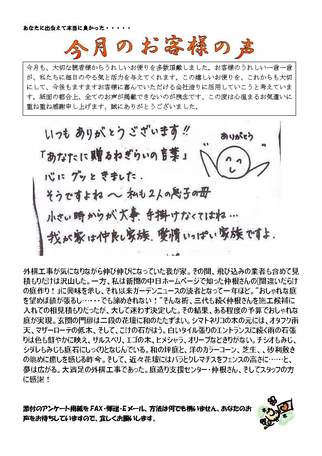 あなたに出会えて本当に良かった・・・・・
今月のお客様の声
今月も、大切な読者様からうれしいお便りを多数頂戴しました。お客様のうれしい一言一言
が、私たちに毎日のやる気と活力を与えてくれます。この嬉しいお便りを、これからも大切
にして、今後もますますお客様に喜んでいただける会社造りに活用していこうと考えていま
す。紙面の都合上、全てのお声が掲載できないのが残念です。この度は心温まるお気遣いに
重ね重ね感謝申し上げます。誠にありがとうございました。
いつも ありがとうございます!!
ありがとう
「あなたに贈るねぎらいの言葉」
心に グッと きました。
そうですよね~ 私も2人の息子の母
小さい時からが大事 手掛けなくてはね…
我が家は仲良し家族、愛情いっぱい家族ですよ。
外構工事が気になりながら伸び伸びになっていた我が家。その間、飛び込みの業者も含めて見
積もりだけは沢山した。一方、私は新聞の中日ホームページで知った仲根さんの「間違いだらけ
の庭作り!」に興味を示し、それは末ガーデンニュースの読者となって一年ほど。"おしゃれな庭
を望めば値が張るし・・・・・でも諦めきれない!"そんな折、三代も続く仲根さんを施工候補に
入れての相見積もりだったが、大して迷わず決した。その結果、ある程度の予算でおしゃれな
庭が実現。玄関の門扉は二段の花壇に和のたたずまい。シマトネリコの木の元には、オタフク南
天、マザーローデの低木、そして、こけの石がはう。白いタイル張りのエントランスに続く南の石張
りは色も鮮やかに映え、サルスベリ、エゴの木、ヒメシャラ、オリーブなどきりがない。チシオもみじ、
シダレもみじも庭石にしっくりとなじんでいる。和の坪庭と、洋のカラーコーン、芝生、、、砂利敷き
の眺めに癒しを感じる昨今。そして、近々花壇にはバラとクレマチスをフェンスの高さに……と、
夢は広がる。大満足の外構工事であった。庭造り支援センター・仲根さん、そしてスタッフの方
に感謝!
添付のアンケート用紙をFAX・郵送・Eメール、方法は何でも構いません、あなたのお
声をお待ちしていますので、宜しくお願いします。